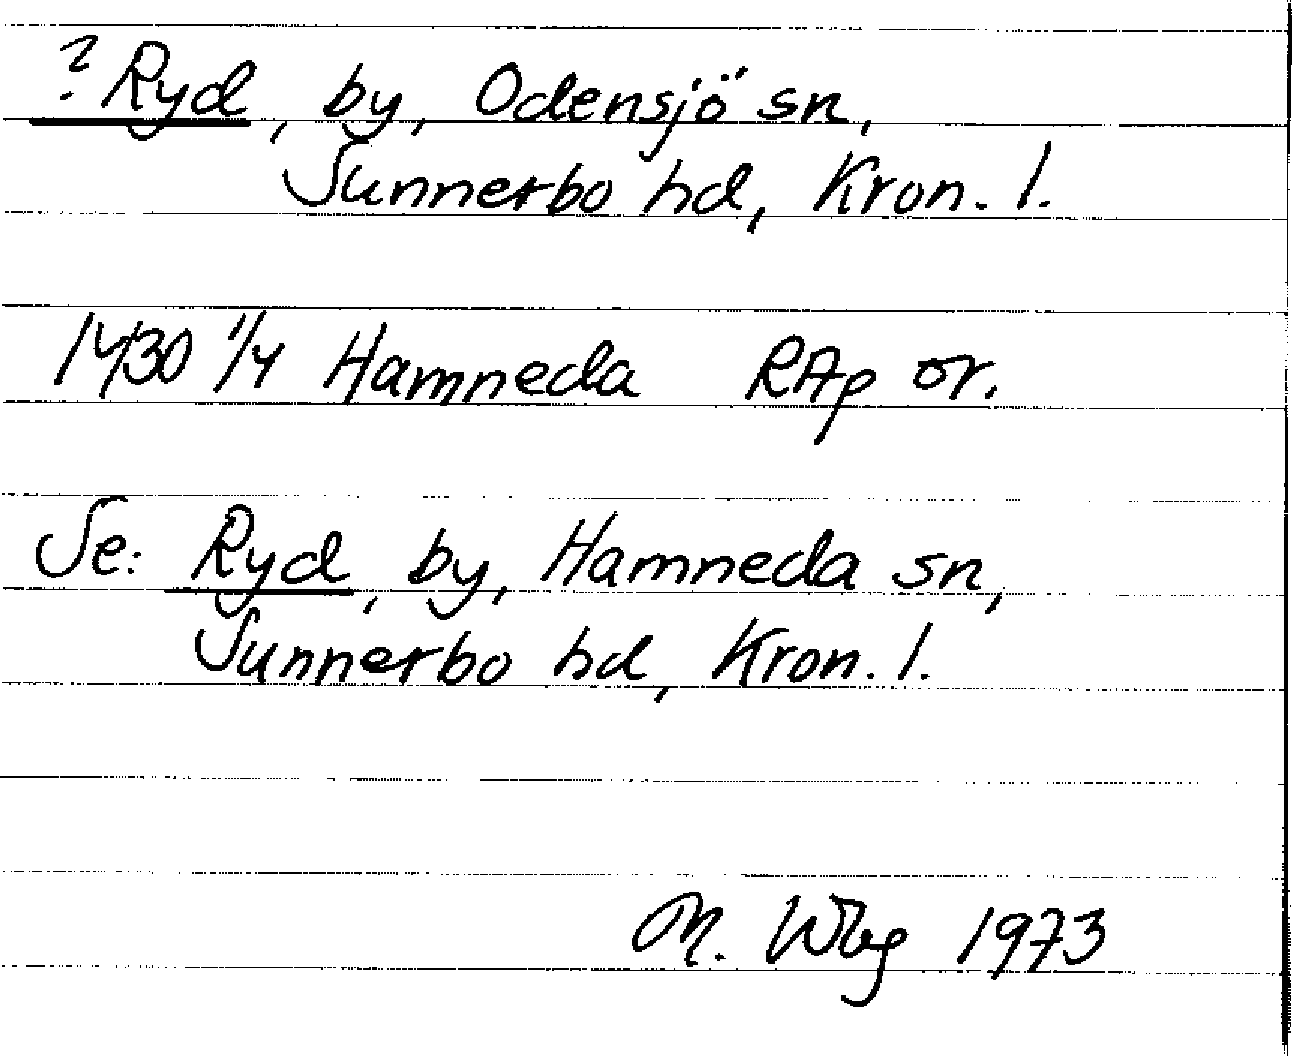 ? Ryd, by, Odensjö sn,
Sunnerbo hd, Kron. l.
1430 1/4 Hamneda RAp or.
Se: Ryd, by, Hamneda sn,
Sunnerbo hd, Kron. l.
M. Wbg 1973